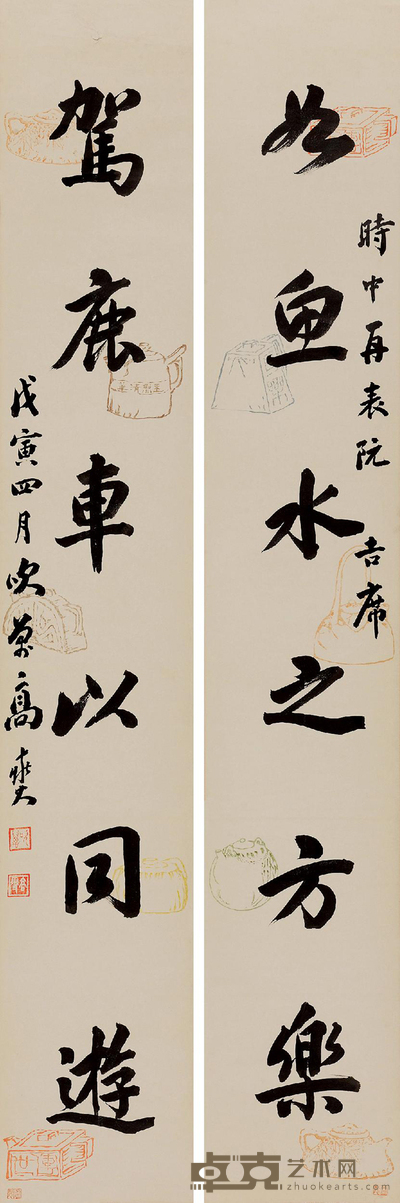 如魚水之方樂
時中再表阮 吉席
駕鹿車以同遊
戊寅四月吹萬高燮
卓克艺术网
www.zhuokearts.com